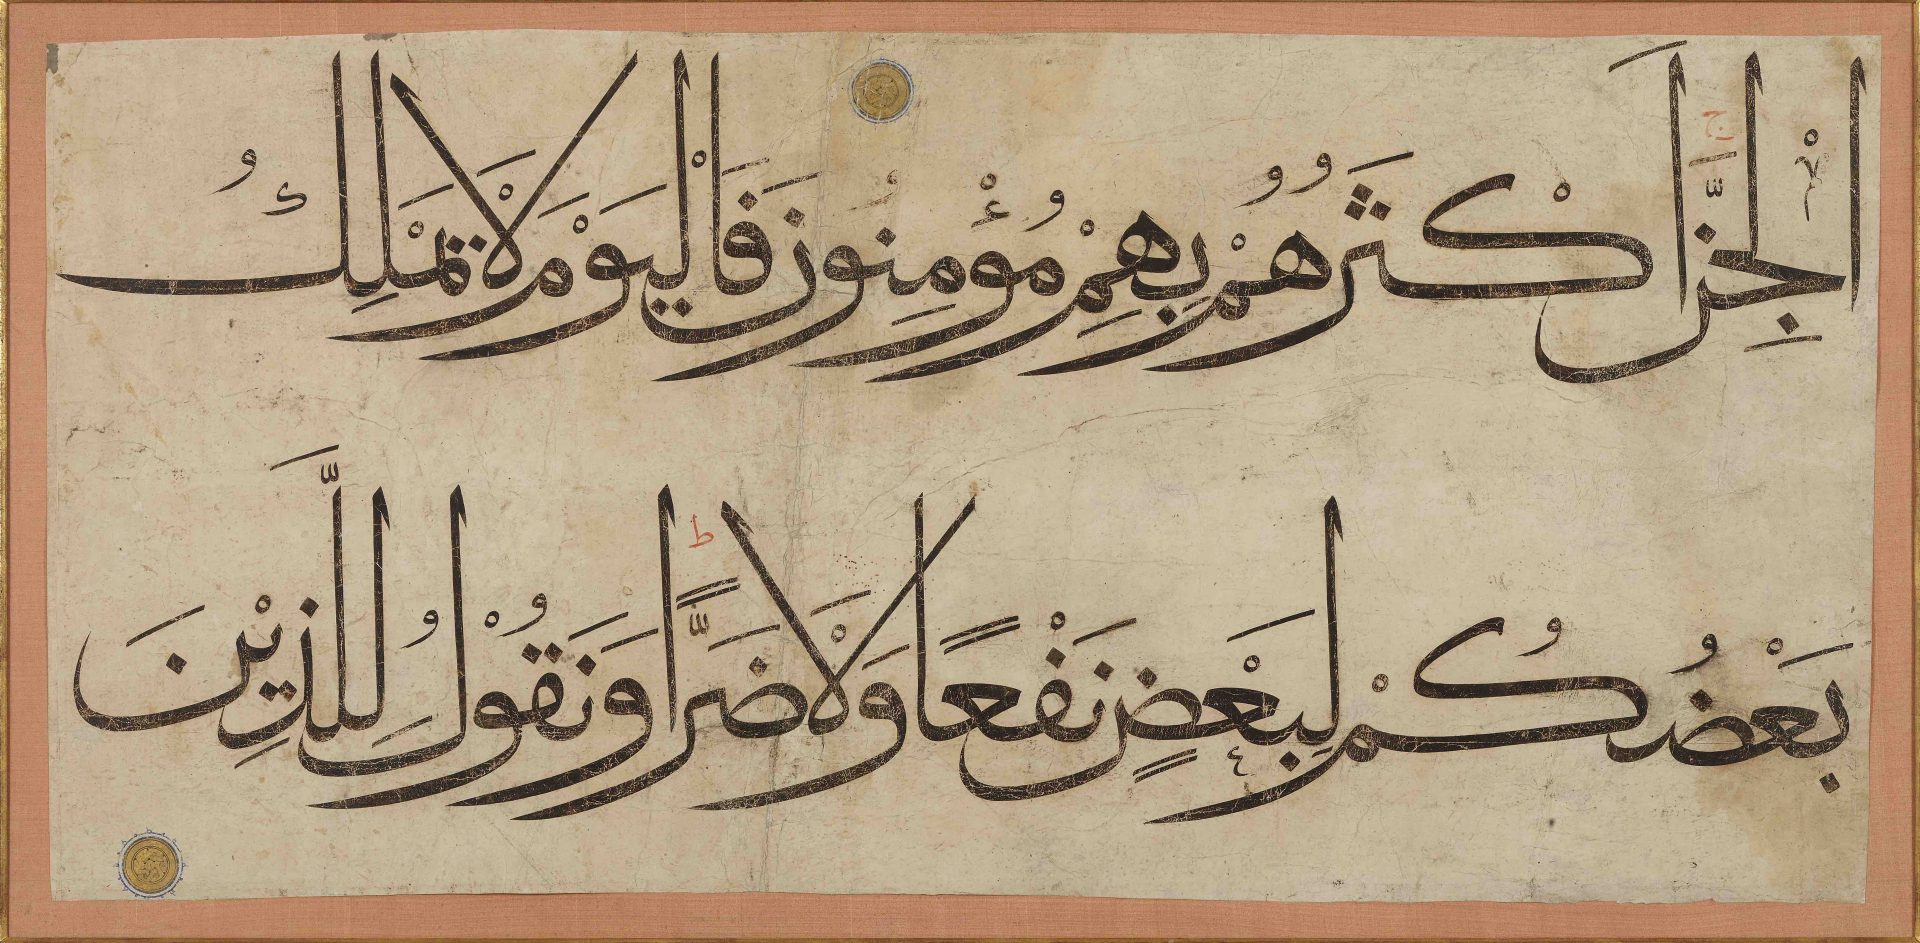 الْجِنَّ ۚ اَكْثَرُهُمْ بِهِمْ مُؤْمِنُونَ فَالْيَوْمَ لَا يَمْلِكُ
بَعْضُكُمْ لِبَعْضٍ نَفْعًا وَلَا ضَرًّا ط وَنَقُولُ لِلَّذِينَ